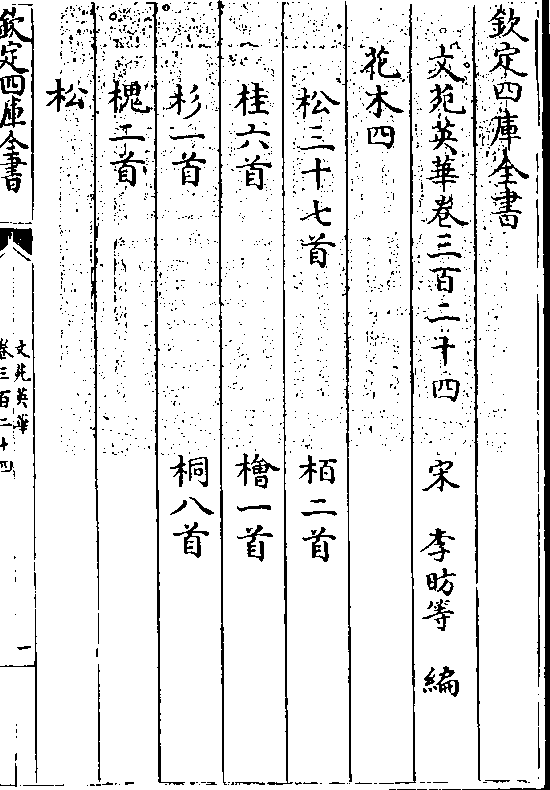 欽定四庫全書
文苑英華卷三百二十四 宋 李昉等 編
花木四
松三十七首 栢二首
桂六首 檜一首
杉一首 桐八首
槐二首
松
欽定四庫全書
文苑英華
卷三百二十四
一